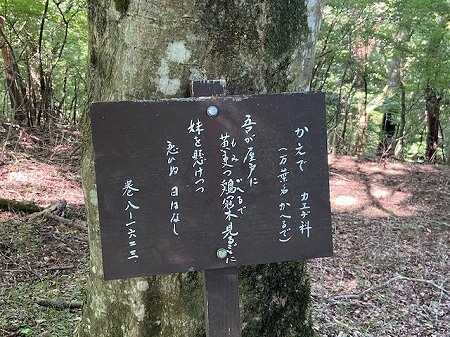 かえで カエデ科
(万葉名 かへるで)
吾が屋戸に
もみ かへるで
黄変つ鶏冠木見るごとに
妹を懸けつつ
恋ひぬ 日はなし
巻 八ー一六二三